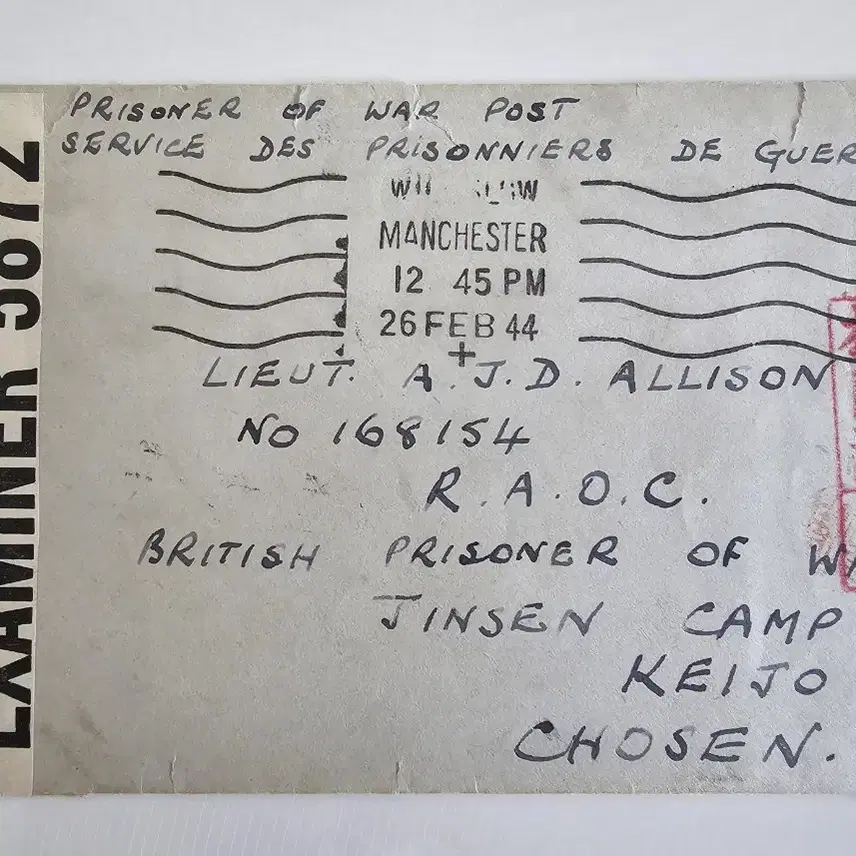 PRISONER OF WAR POST
SERVICE DES PRISONNIERS DE GUER
MANCHESTER
12 45 PM
26 FEB 44
LIEUT. A.J.D. ALLISON
NO 168154
R.A.O.C.
BRITISH PRISONER OF WA
JINSEN CAMP
KEIJO
CHOSEN.
EXAMINER 5872